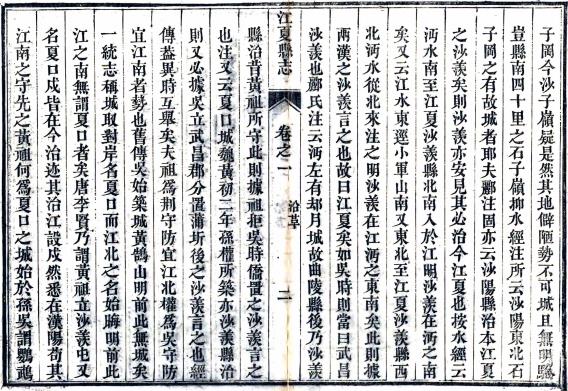 子岡今沙子嶺屍是然其地僻陋勢不可城且無明驗
豈縣南四十里之石子嶺抑水經注所云沙陽東北石
子岡之有故城者耶夫酈注固亦云沙陽縣治本江夏
之沙羨矣則沙羨亦安見其必治今江夏也按水經云
沔水南至江夏沙羨縣北南入於江明沙羨在沔之南
矣又云江水東逕小軍山南又東北至江夏沙羨縣西
北沔水從北來注之明沙羨在江沔之東南矣此則據
兩漢之沙羨言之也故曰江夏矣如吳時則當曰武昌
沙羨也酈氏注云沔左有却月城故曲陵縣後乃沙羨
江夏縣志
卷之一
沿革
二
縣治昔黃祖所守此則據祖拒吳時僑置之沙羨言之
也注又云夏口城魏黃初二年孫權所築亦沙羨縣治
則又必據吳立武昌郡分置蒲圻後之沙羨言之也經
傳葢異時互舉矣夫祖為荆守防宜江北權為吳守防
宜江南者勢也舊傳吳始築城黃鵠山明前此無城矣
一統志稱城取對岸名夏口而江北之名始晦明前此
江之南無謂夏口者矣唐李賢乃謂黃祖立沙羨屯又
名夏口戍皆在今治迹其治江設戍然悉在漢陽苟其
江南之守先之黃祖何爲夏口之城始於孫吳謂鸚鵡